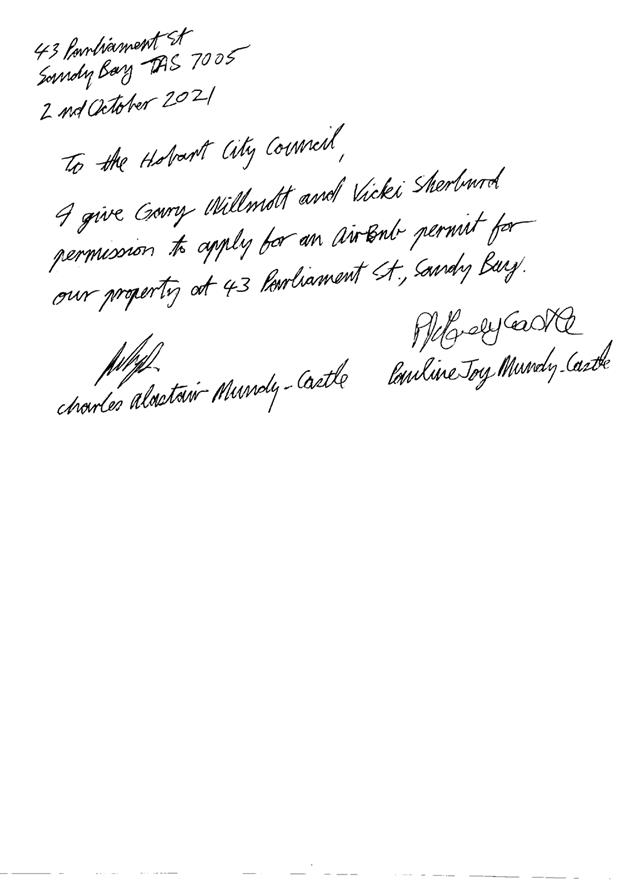 43 Parliament St
Sandy Bay TAS 7005
2nd October 2021
To the Hobart City Council,
I give Gary Willmott and Vicki Sherburd
permission to apply for an AirBnb permit for
our property at 43 Parliament St., Sandy Bay.
PJMundyCastle
Charles Alastair Mundy-Castle Pauline Joy Mundy-Castle